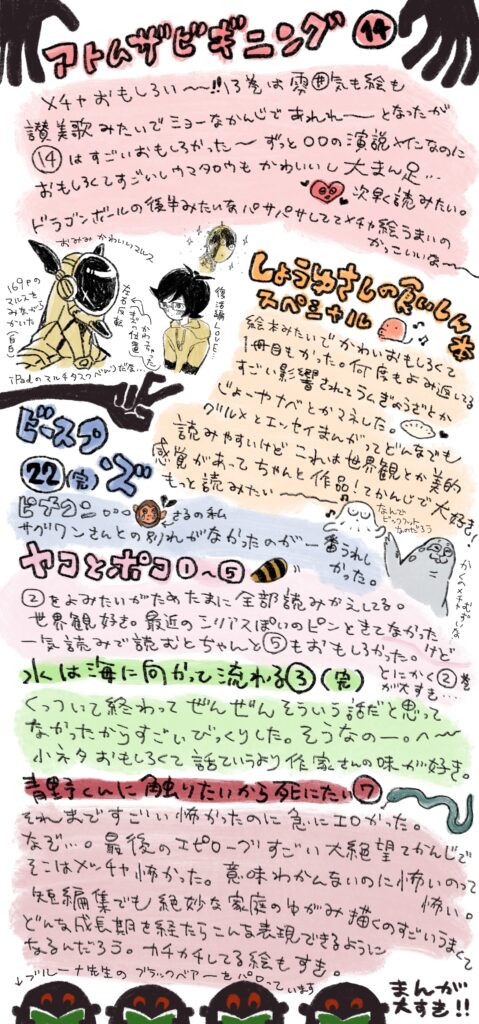 アトムザビギニング⑭
メチャおもしろい〜〜!!13巻は雰囲気も絵も
讃美歌みたいでミョーなかんじであれれーーとなったが
⑭はすごいおもしろかった〜ずっと〇〇の演説メインなのに
おもしろくてすごいしウマタロウもかわいいし大まん足…
次早く読みたい。
ドラゴンボールの後半みたいなパサパサしててメチャ絵うまいの
かっこいいな〜〜
おみみかわいいマルス
169Pの
マルスを
みながら
かいた
(自己
iPadのマルチタスクべんりだな…
左右反転
かわっちゃった
復活編LOVE…
しょうゆさしの食いしん本
スペシャル
絵本みたいでかわいおもしろくて
1冊目もかった。何度もよみ返してる
すごい影響されてうんぎのうざとか
じょーヤナベとかマネした。
グルメとエッセイまんがってどんなでも
読みやすいけどこれは世界観とか美的
感覚があってちゃんと作品!てかんじで大好き!
もっと読みたい〜〜
なんで
ビッグフット
なのだろう
かくのメチャむずいな
ビースタ
ーズ
22(完)
ピナクン…
さるの私
サグワンさんとの別れがなかったのが一番うれし
かった。
ヤコとポコ①〜⑤
②をよみたいがためたまに全部読みかえしてる。
世界観好き。最近のシリアスぽいのピンときてなかったけど
一気読みで読むとちゃんと⑤もおもしろかった。
とにかく②巻
が大すき…
水は海に向かって流れる③(完)
くっついて終わってぜんぜんそういう話だと思って
なかったからすごいびっくりした。そうなのー。へ〜
小ネタおもしろくて話ていうより作家さんの味が好き。
青野くんに触りたいから死にたい⑦
それまですごい怖かったのに急にエロかった。
なぞ…。最後のエピローグすごい大絶望てかんじで
そこはメーチャ怖かった。意味わかんないのに怖いのって
怖い。
短編集でも絶妙な家庭のゆがみ描くのすごいうまくて
どんな成長期を経たらこんな表現できるように
なるんだろう。カチカチしてる絵もすき。
↓ブルーナ先生のブラックベアーをパロっています
まんが
大すき!!